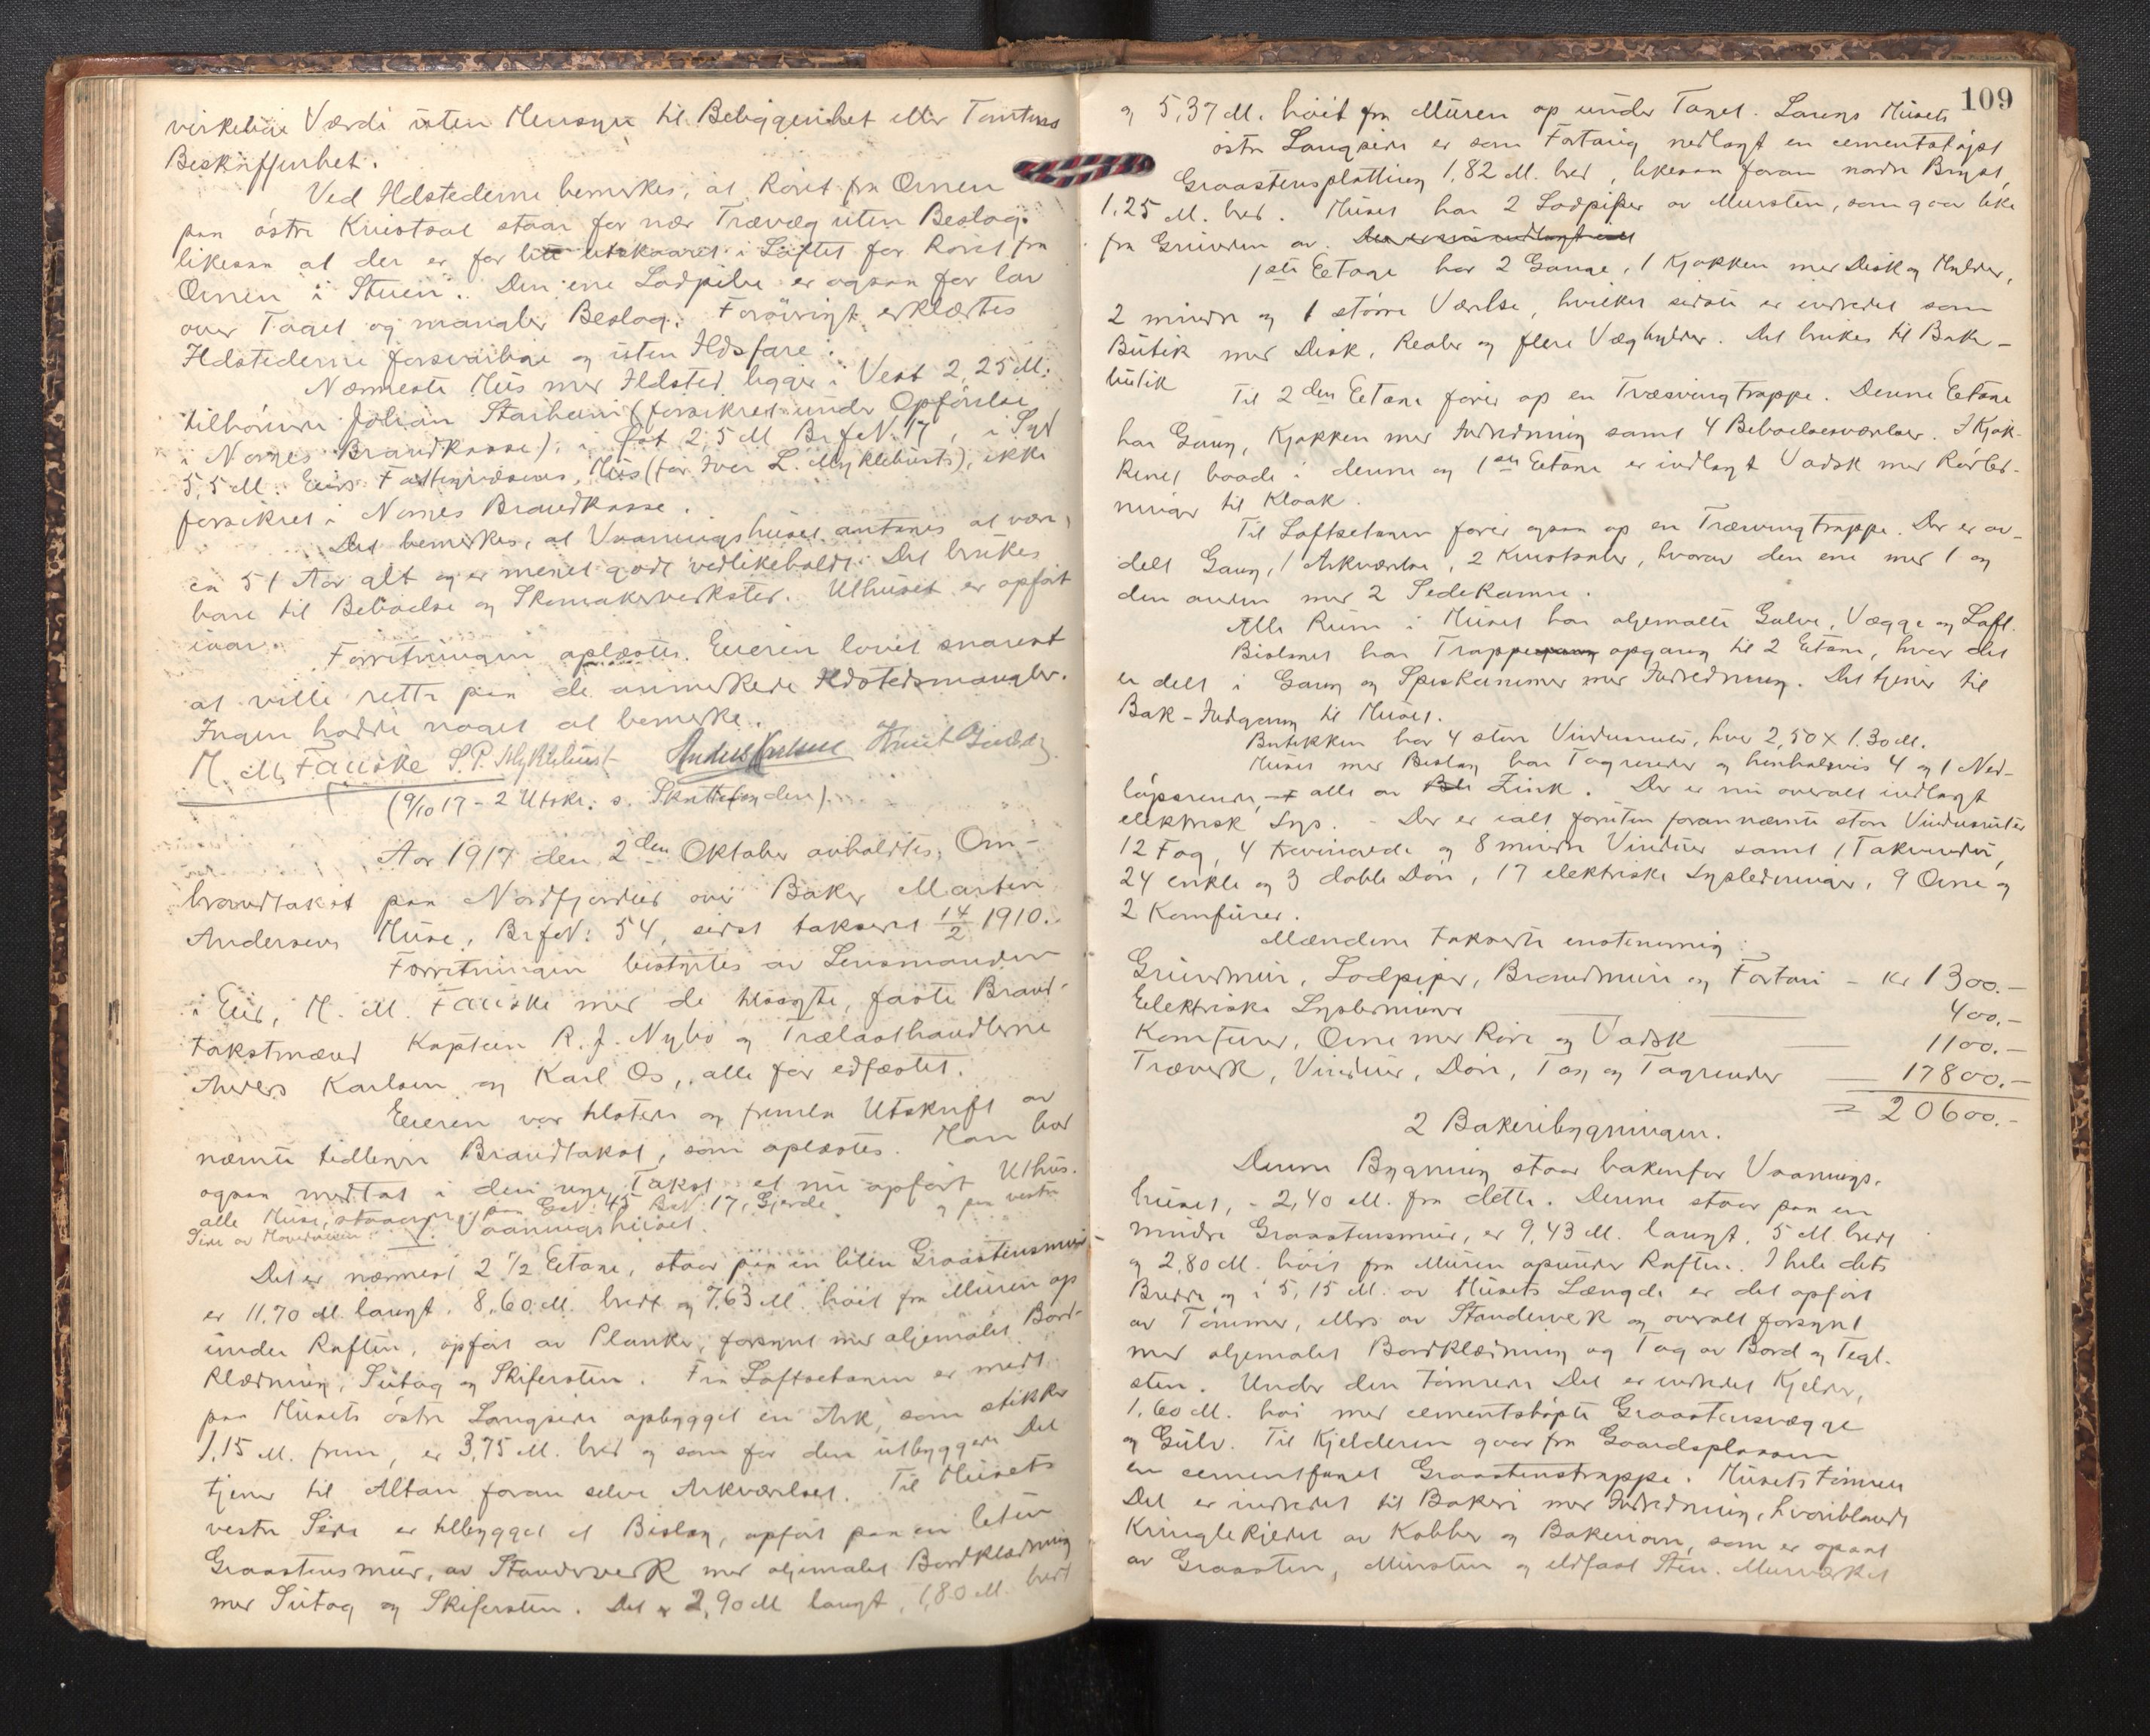 virkelige Værdi uten Hensyn til Beliggenhet eller Tomtens
Beskaffenhet.
Ved Ildstederne bemerkes, at Röret fra Ovnen
paa östre Kvistsal staar for nær Trævæg uten Beslag.
likesaa at der er for litt utskaaret i Loftet for Röret fra
Ovnen i Stuen. Den ene Lodpibe er ogsaa for lav
over Taget og mangler Beslag. Forövrigt erklærtes
Ildstederne forsvarlige og uten Ildsfare.
Nærmeste Hus med Ildsted ligger i Vest 2,25 M.
tilhörende Johan Starheim (forsikret under Opförelse
i Norges Brandkasse); i Öst 2,5 M BrfN. 17, i Syd
5,5 M. Eids Fattigvæsens Hus (för Iver L. Myklebusts), ikke
forsikret i Norges Brandkasse.
Det bemerkes, at Vaaningshuset antages at være
ca 51 Aar glt og er meget godt vedlikeholdt. Det brukes
bare til Beboelse og Skomakerverksted. Uthuset er opfört
iaar.
Forretningen oplæstes. Eieren lovet snarest
at ville rette paa de anmerkede Ildstedsmangler.
Ingen hadde noget at bemerke.
H. M. Fauske S. P. Myklebust Anders Karlsen Knut
(9/10 17 - 2 Utskr. s. Skattefogden).
Aar 1917 den 2den Oktober avholdtes Om-
brandtakst paa Nordfjordeid over Baker Martin
Andersens Huse, BrfN: 54, sidst taksert 14/2 1910.
Forretningen bestyrtes av Lensmanden
i Eid, H. M. Fauske med de tilsagte, faste Brand-
takstmænd Kaptein R. J. Nybö og Trælasthandlerne
Anders Karlsen og Karl Os, alle för edfæstet.
Eieren var tilstede og fremla Utskrift av
nævnte tidligere Brandtakst, som oplæstes. Han har
ogsaa medtat i den nye Takst et nu opfört Uthus.
alle Huse, staaende paa GN: 45 BN: 17, Gjerde og paa vestre
Side av Hovedveien. 1. Vaaningshuset.
Det er nærmest 2 1/2 Etage, staar paa en liten Graastensmur
er 11,70 M. langt, 8,60 M. bredt og 7,63 M. höit fra Muren op
under Raften, opfört av Planker, forsynt med oljemalet Bord-
klædning, Sutag og Skifersten. Fra Loftsetagen er midt
paa Husets östre Langside opbygget en Ark, som stikker
1,15 M. frem, er 3,75 M. bred og som for den utbyggede Del
tjener til Altan foran selve Arkværelset. Til Husets
vestre Side er tilbygget et Bislag, opfört paa en liten
Graastensmur, av Standerverk med oljemalet Bordklædning
med Sutag og Skifersten. Det er 2,90 M langt, 1,80 M. bredt
109
og 5,37 M. höit fra Muren op under Taget. Langs Husets
östre Langside er som Fortaug nedlagt en cementstöpt
Graastensplatting 1,82 M. bred, likesaa foran nordre Bryst,
1,25 M. bred. Huset har 2 Lodpiper av Mursten, som gaar like
fra Grunden av. Der er nu indlagt
1ste Etage har 2 Gange, 1 Kjökken med Disk og Hylder,
2 mindre og 1 större Værelse, hvilket sidste er indredet som
Butik med Disk, Realer og flere Væghylder. Det brukes til Baker-
butik
Til 2den Etage förer op en Træsvingtrappe. Denne Etage
har Gang, Kjökken med Indredning samt 4 Beboelsesværelser. I Kjök-
kenet baade i denne og 1ste Etage er indlagt Vadsk med Rörled-
ninger til Kloak.
Til Loftsetagen förer ogsaa op en Træsvingtrappe. Der er av-
delt Gang, 1 Arkværelse, 2 Kvistsaler, hvorav den ene med 1 og
den anden med 2 Sidekamre.
Alle Rum i Huset har oljemalte Gulve, Vægge og Loft.
Bislaget har Trappegang opgang til 2 Etage, hvor det
er delt i Gang og Spiskammer med Indredning. Det tjener til
Bak-Indgang til Huset.
Butikken har 4 store Vinduruter, hver 2,50 x 1,30 M.
Huset med Bislag har Tagrender og henholdsvis 4 og 1 Ned-
löpsrender, alle av Zink. Der er nu overalt indlagt
elektrisk Lys. - Der er ialt foruten forannævnte store Vindusruter
12 Fag, 4 trevinvede og 8 mindre Vinduer samt 1 Takvindu,
24 enkle og 3 doble Döre, 17 elektriske Lysledninger, 9 Ovne og
2 Komfurer.
Mændene takserte enstemmig:
Grundmur, Lodpiper, Brandmure og Fortau - Kr 1300.-
Elektriske Lysledninger — 400.-
Komfurer, Ovne med Röre og Vadsk — 1100.-
Træverk, Vinduer, Döre, Tag og Tagrender — 17800.-
= 20600.-
2 Bakeribygningen.
Denne Bygning staar bakenfor Vaanings-
huset, - 2,40 M. fra dette. Denne staar paa en
mindre Graastensmur, er 9,43 M. langt, 5 M. bredt
og 2,80 M. höit fra Muren opunder Raften. I hele dets
Bredde og i 5,15 M. av Husets Længde er det opfört
av Tömmer, ellers av Standerverk og overalt forsynt
med oljemalet Bordklædning og Tag av Bord og Tegl-
sten. Under den tömrede Del er indredet Kjelder,
1,60 M. höi med cementstöpte Graastensvægge
og Gulv. Til Kjelderen gaar fra Gaardsplassen
en cementfuget Graastenstrappe. Husets tömrede
Del er indredet til Bakeri med Indredning, hvoriblandt
Kringlekjedel av Kobber og Bakeriovn, som er opsat
av Graasten, Mursten og ildfast Sten. Murverket